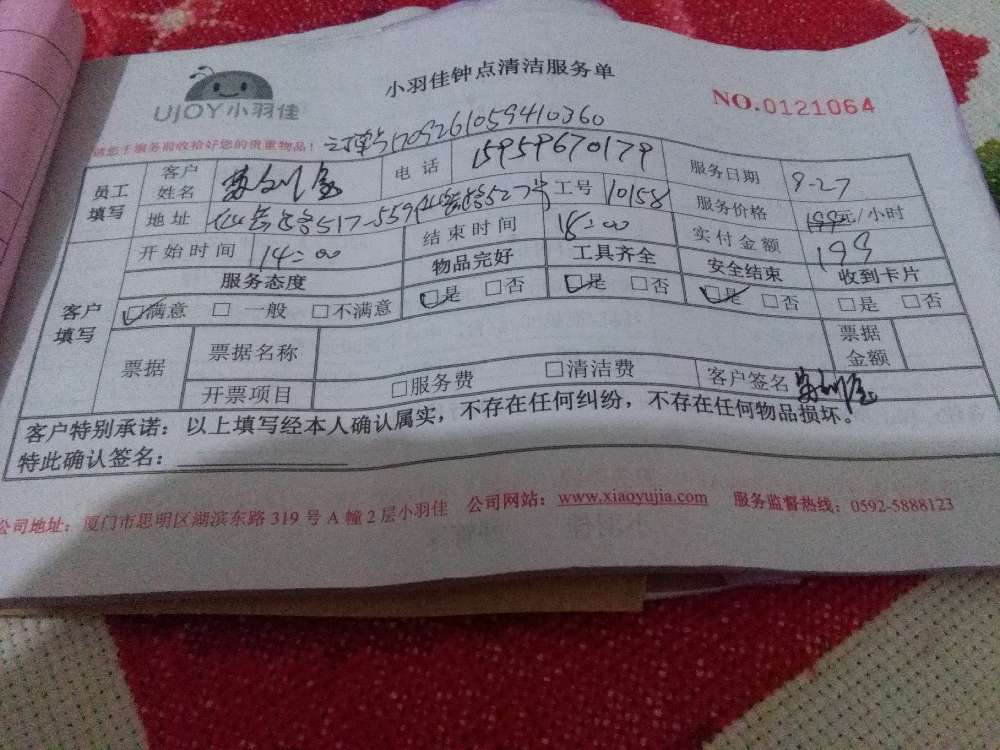 UJOY小羽佳
小羽佳钟点清洁服务单
NO.0121064
请您于服务前收拾好您的贵重物品!
订单号1709261059410360
员工填写 客户姓名 电话 15959670179 服务日期 9-27
地址 517-559 527号 工号 10158 服务价格 199元/小时
客户填写 开始时间 14:00 结束时间 18:00 实付金额 199
服务态度 物品完好 工具齐全 安全结束 收到卡片
☑满意 □一般 □不满意 ☑是 □否 ☑是 □否 ☑是 □否 □是 □否
票据 票据名称 票据金额
开票项目 □服务费 □清洁费 客户签名
客户特别承诺:以上填写经本人确认属实,不存在任何纠纷,不存在任何物品损坏。
特此确认签名:
公司地址:厦门市思明区湖滨东路319号A幢2层小羽佳 公司网站:www.xiaoyujia.com 服务监督热线:0592-5888123